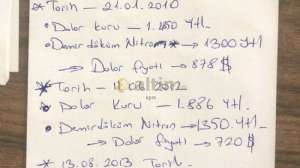 * Tarih — 21.01.2010
• Dolar kuru — 1.480 Ytl.
• Demirdöküm Nitron* → 1300 Ytl
→ Dolar fiyatı → 878 $
* Tarih —
• Dolar Kuru — 1.886 Ytl.
• Demirdöküm Nitron → 1350.Ytl.
→ Dolar fiyatı → 720 $
* 13.08.2013 Tarih
altin